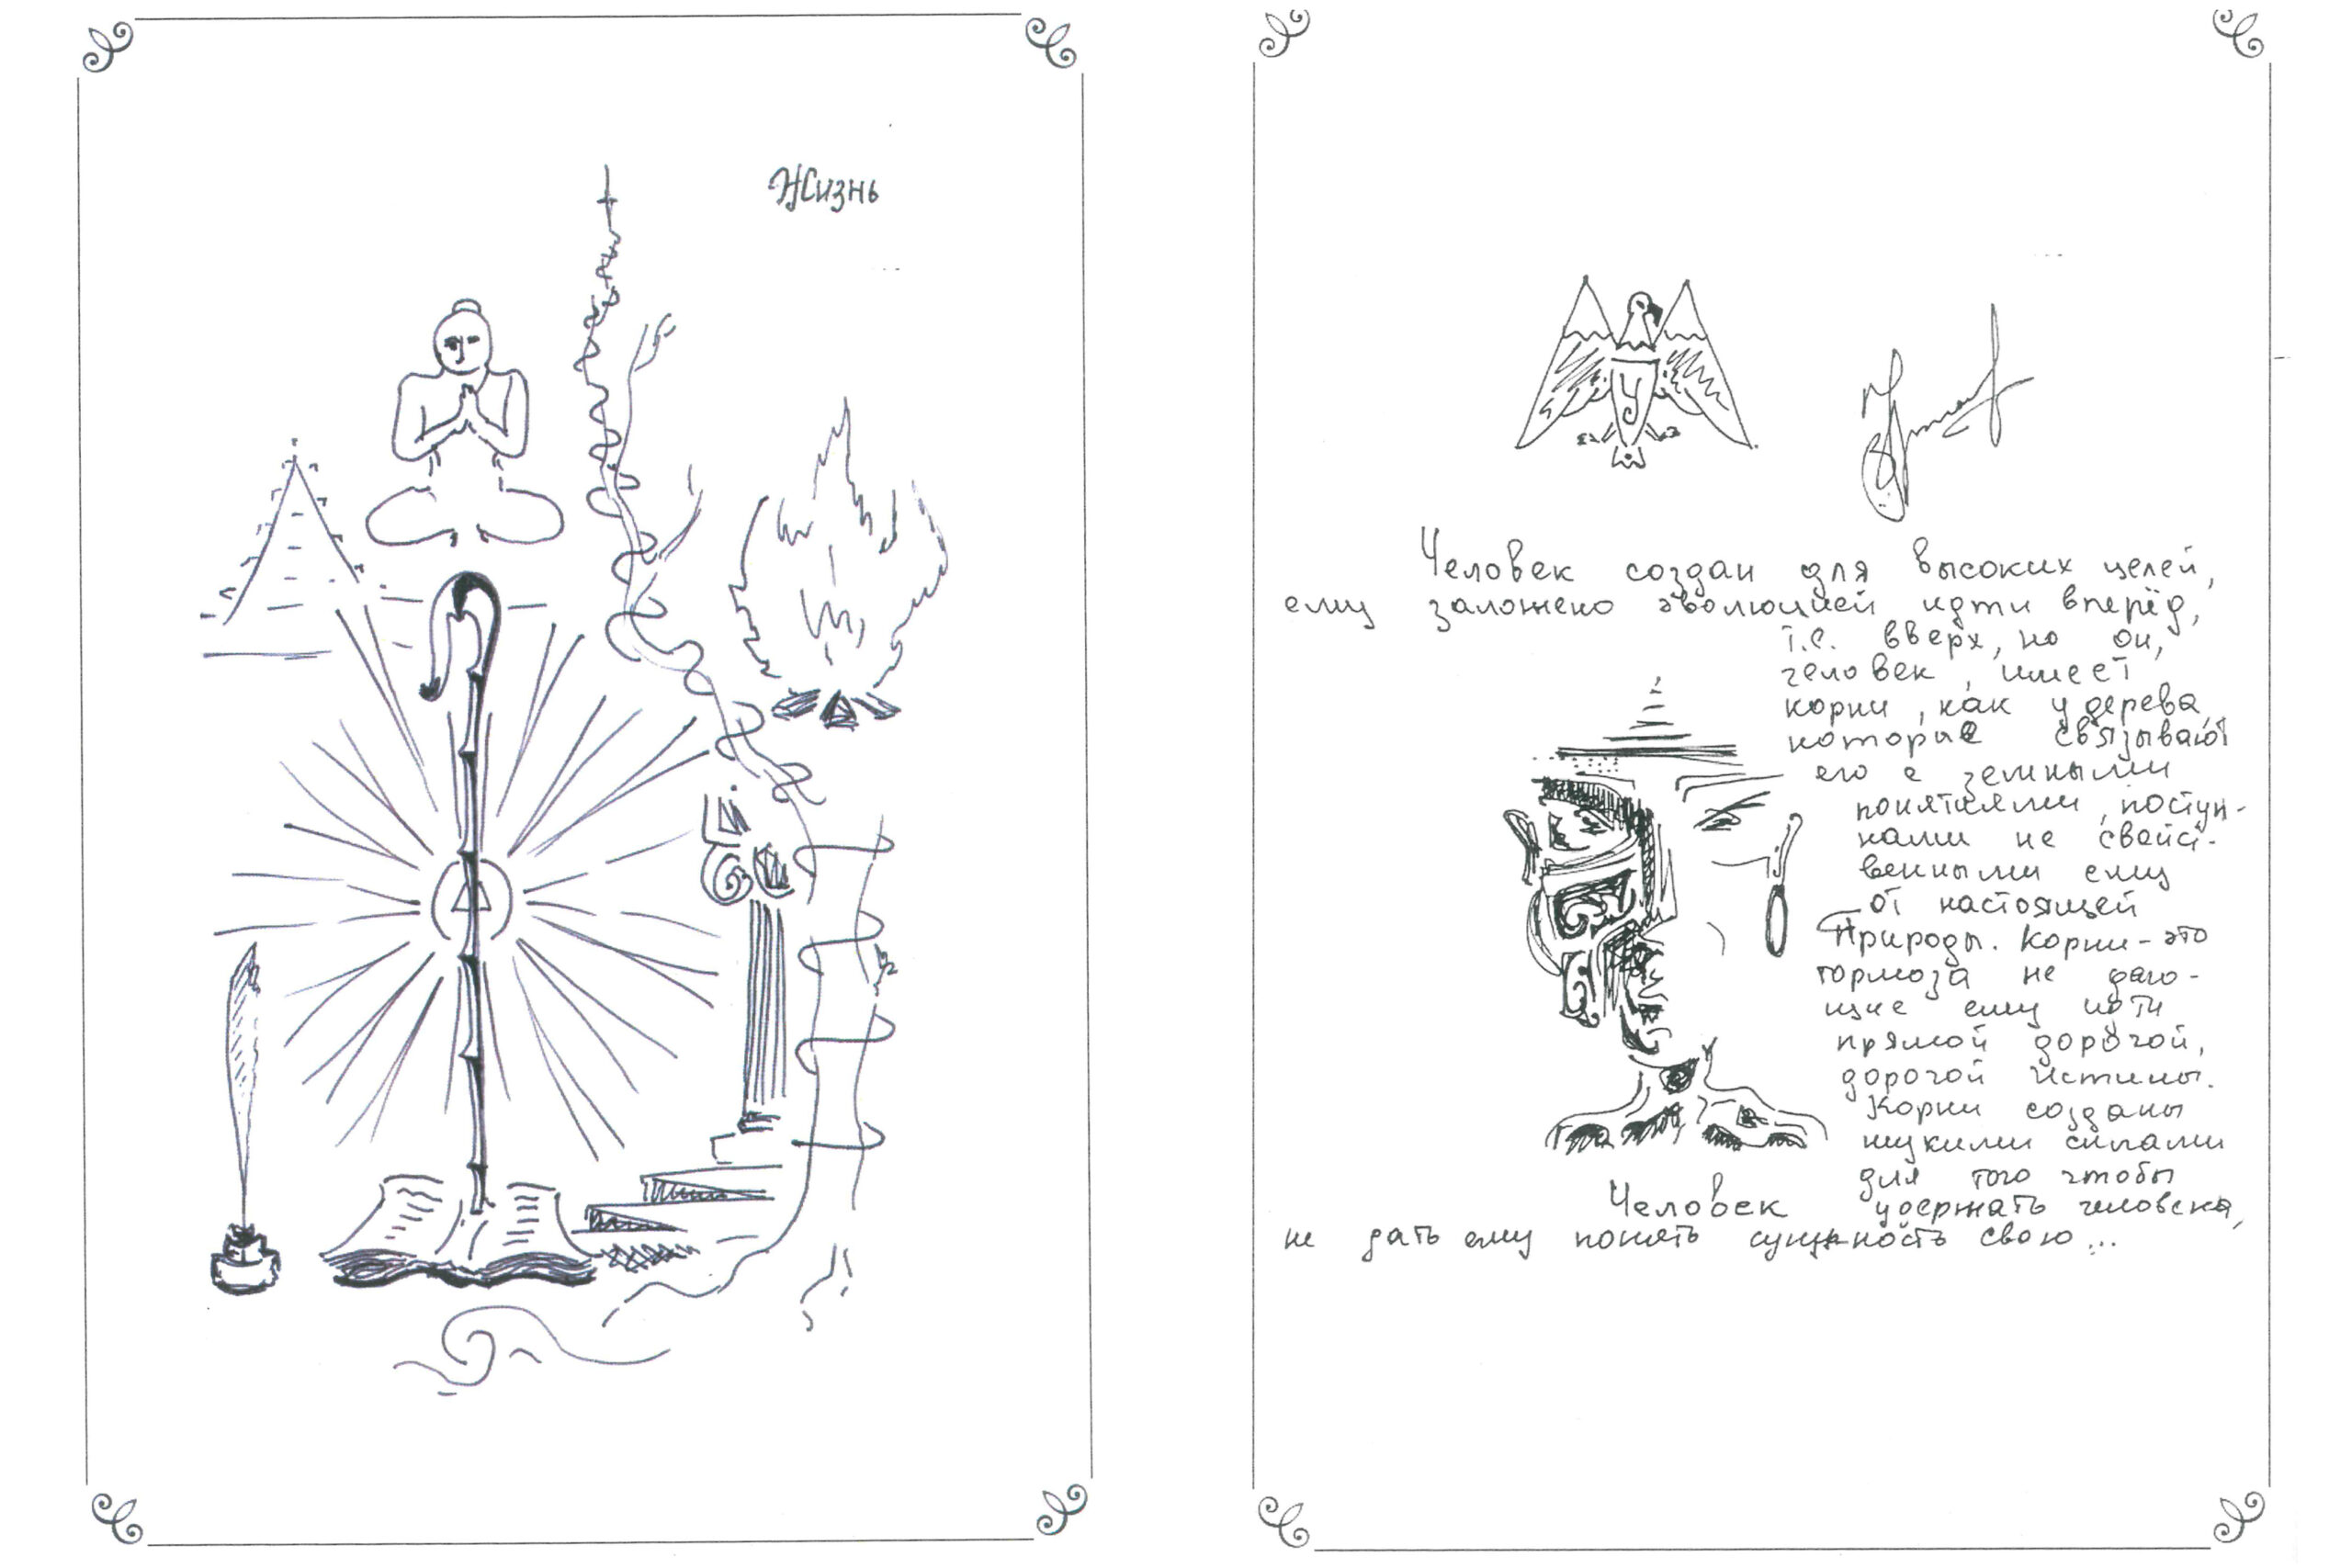 Жизнь
Человек создан для высоких целей,
ему заложено эволюцией идти вперёд,
т.е. вверх, но он,
человек, имеет
корни, как у дерева,
которые связывают
его с земными
понятиями, поступ-
ками не свойст-
венными ему
от настоящей
Природы. Корни - это
тормоза не даю-
щие ему идти
прямой дорогой,
дорогой Истины.
Корни созданы
силами
для того чтобы
Человек
удержать человека,
не дать ему понять сущность свою...